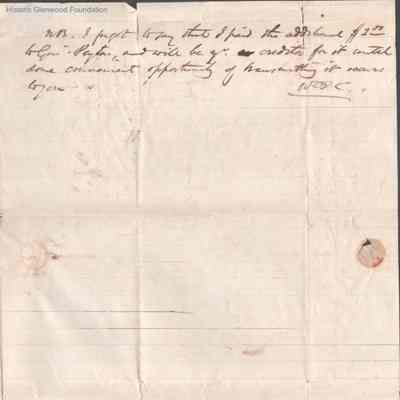 Historic Glenwood Foundation
NB. I forgot to say that I paid the additional $2.00
to Gen. Payton, and will be yr. creditor for it until
some convenient opportunity of transmitting it occurs
to you
W.B.C.